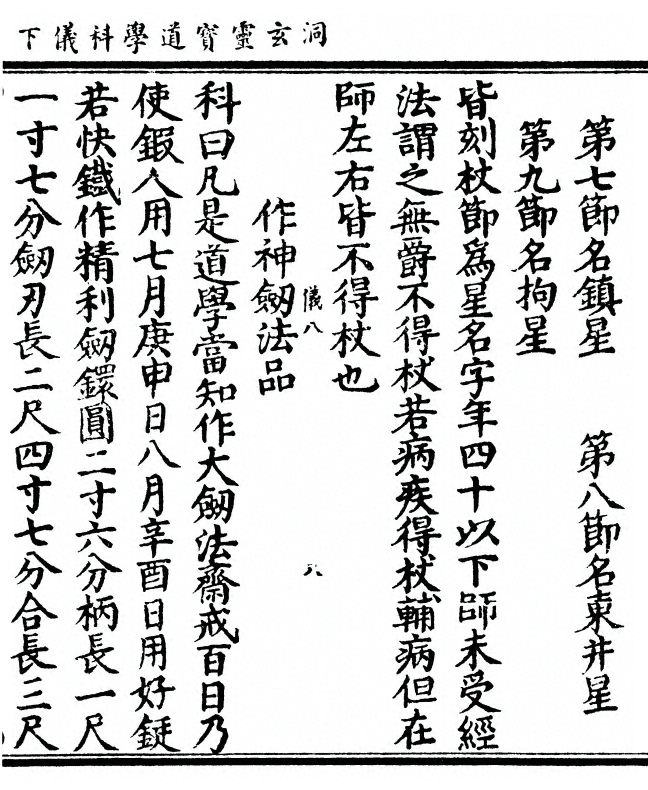 洞玄靈寶道學科儀下
第七節名鎮星　第八節名東井星
第九節名拘星
皆刻杖節為星名字年四十以下師未受經
法謂之無爵不得杖若病疾得杖輔病但在
師左右皆不得杖也
儀八
八
作神劒法品
科曰凡是道學當知作大劒法齋戒百日乃
使鍜人用七月庚申日八月辛酉日用好鋌
若快鐵作精利劒鐶圓二寸六分柄長一尺
一寸七分劒刃長二尺四寸七分合長三尺